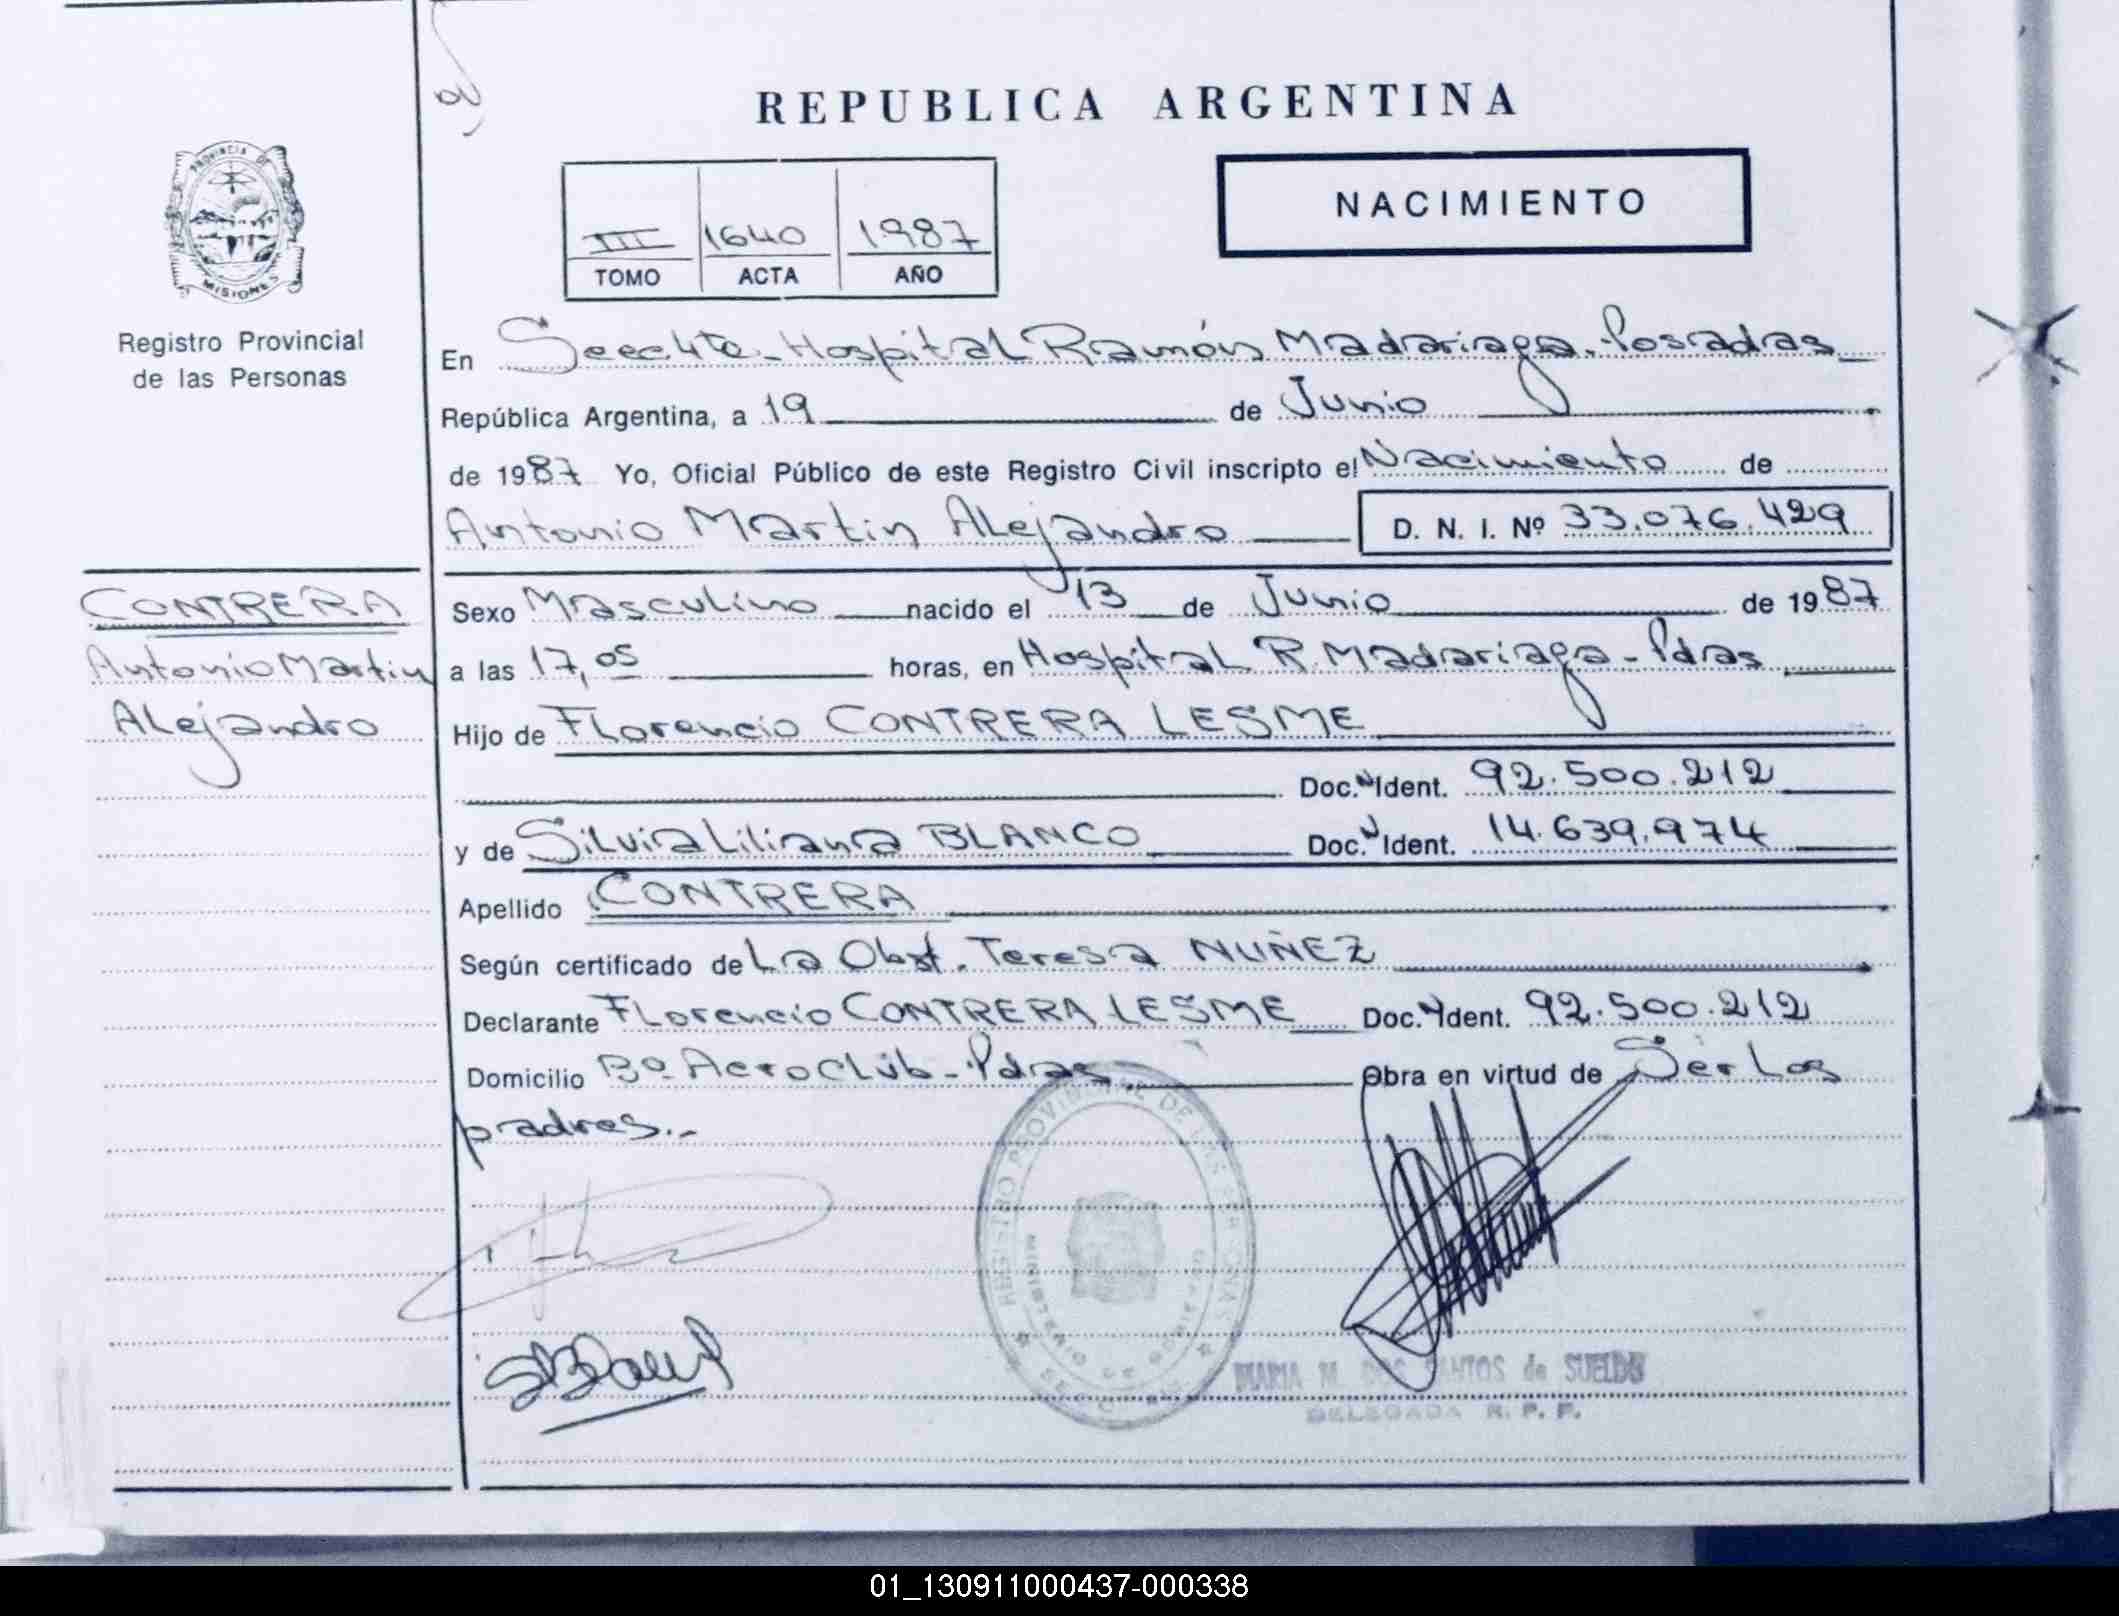 REPUBLICA ARGENTINA
NACIMIENTO
PROVINCIA DE
MISIONES
III 1640 1987
TOMO ACTA AÑO
Registro Provincial
de las Personas
En Hospital Ramón Madariaga. Posadas
República Argentina, a 19 de Junio
de 1987 Yo, Oficial Público de este Registro Civil inscripto el Nacimiento de
Antonio Martin Alejandro D. N. I. Nº 33.076.429
CONTRERA
Antonio Martin
Alejandro
Sexo Masculino nacido el 13 de Junio de 1987
a las 17,05 horas, en Hospital R. Madariaga - Pdas
Hijo de Florencio CONTRERA LESME
Doc. N Ident. 92.500.212
y de Silvia Liliana BLANCO Doc. N Ident. 14.639.974
Apellido CONTRERA
Según certificado de La Obst. Teresa NUÑEZ
Declarante Florencio CONTRERA LESME Doc. N Ident. 92.500.212
Domicilio Bº AeroClub - Pdas. Obra en virtud de Ser Los
padres.-
REGISTRO PROVINCIAL DE LAS PERSONAS
MINISTERIO DE GOBIERNO
MARIA M. DOS SANTOS de SUELDO
DELEGADA R. P. P.
01_130911000437-000338